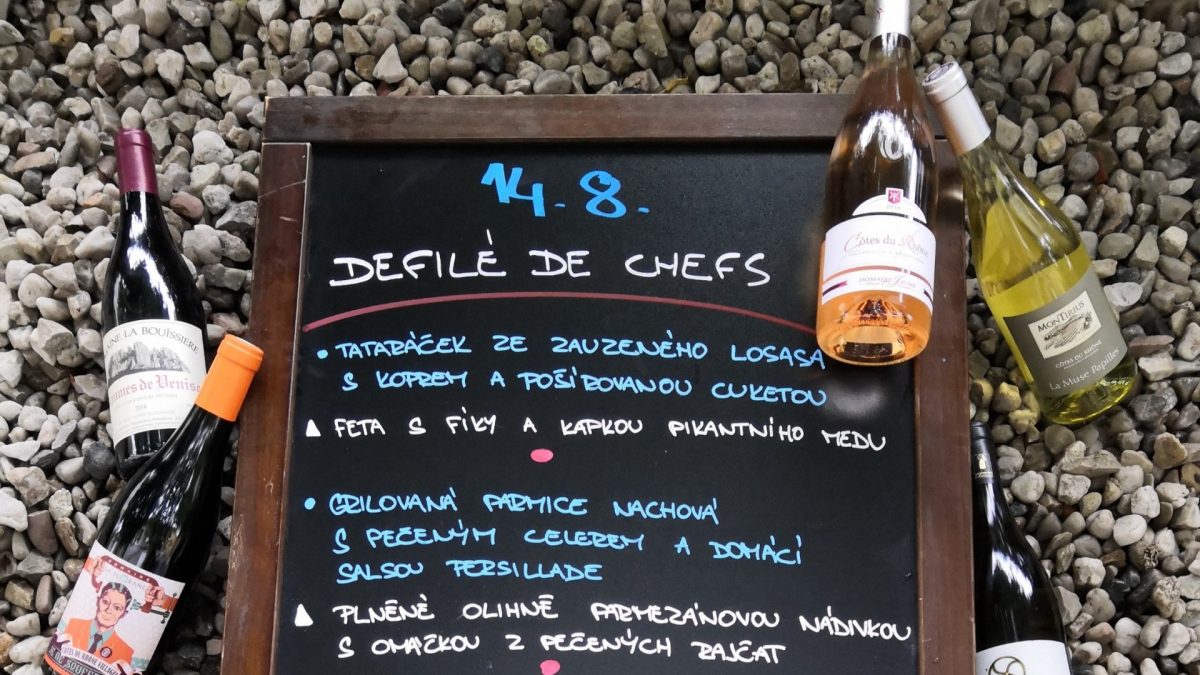 14. 8.
DEFILÉ DE CHEFS
• TATARÁČEK ZE ZAUZENÉHO LOSASA
S KOPREM A POŠÍROVANOU CUKETOU
FETA S FÍKY A KAPKOU PIKANTNÍHO MEDU
• GRILOVANÁ PARMICE NACHOVÁ
S PEČENÝM CELEREM A DOMÁCÍ
SALSOU PERSILLADE
PLNĚNÉ OLIHNĚ PARMEZÁNOVOU NÁDIVKOU
S OMÁČKOU Z PEČENÝCH RAJČAT
LA BOUÏSSIERE
de Venise
2014
DOMAINE
CÔTES DU RHÔNE VILLAGES
Côtes du Rhône
DOMAINE JAUME
MONTIRIUS
CÔTES DU RHÔNE
La Muse Papilles